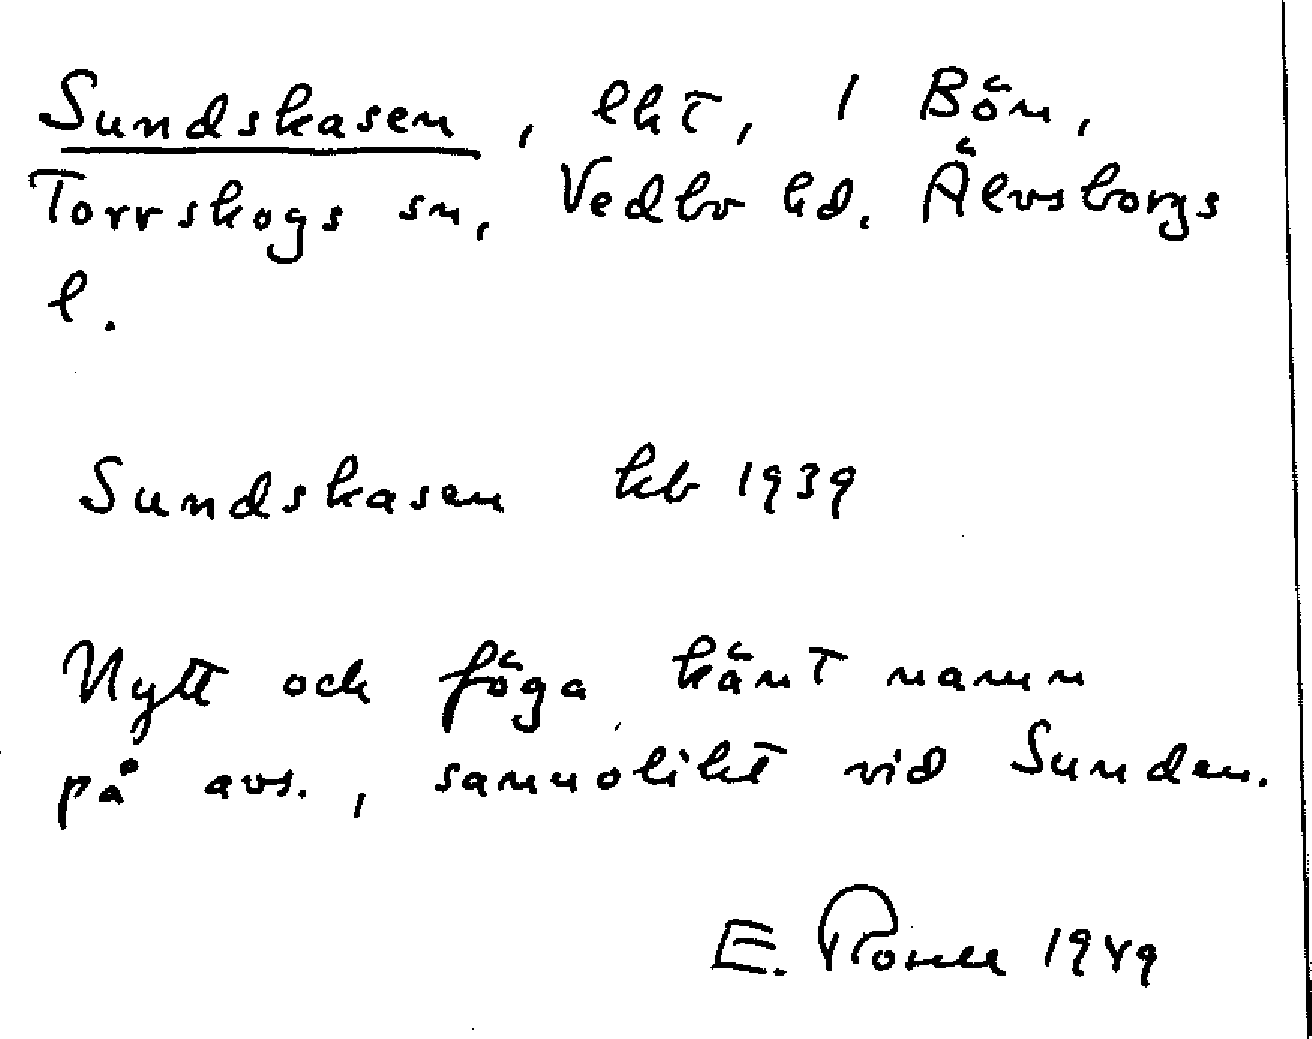 Sundskasen, lht, 1 Bön,
Torrskogs sn, Vedbo hd. Älvsborgs
l.
Sundskasen kb 1939
Nytt och föga känt namn
på avs., sannolikt vid Sunden.
E. Rosell 1949